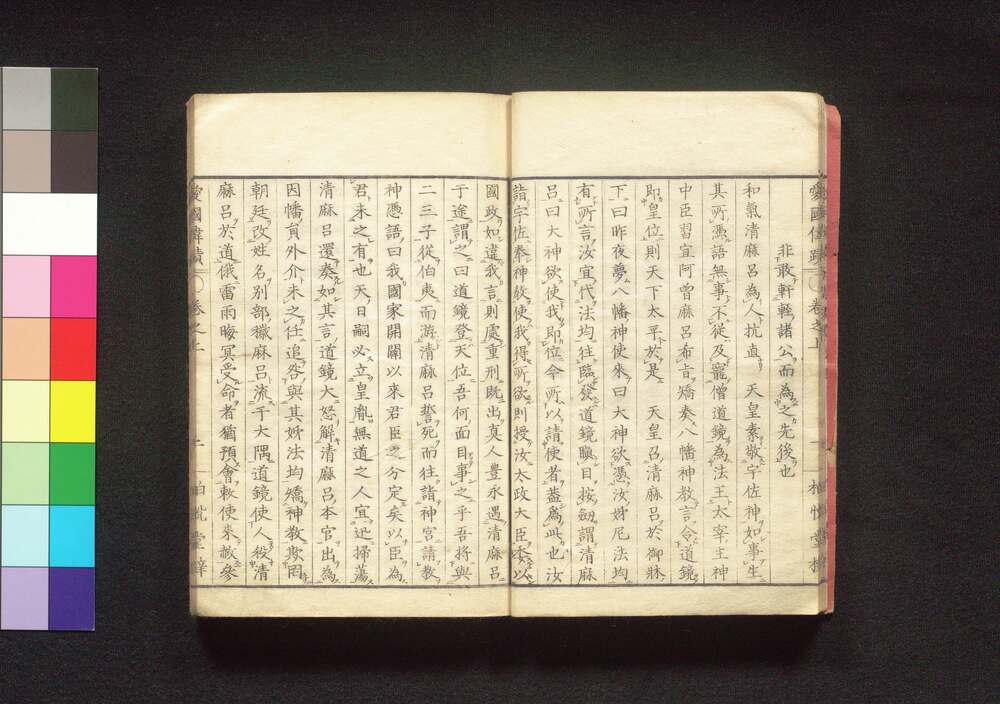 非敢軒輊諸公而為之先後也
和氣清麻呂為人抗直 天皇素敬宇佐神如事生
其所憑語無事不從及寵僧道鏡為法王太宰主神
中臣習宜阿曾麻呂希旨矯奏八幡神教言令道鏡
即皇位則天下太平於是 天皇召清麻呂於御牀
下曰昨夜夢八幡神使來曰大神欲憑汝姊尼法均
有所言汝宜代法均往臨發道鏡瞋目按劒謂清麻
呂曰大神欲使我即位命所以請使者蓋為此也汝
詣宇佐奉神教使我得所欲則授汝太政大臣委以
國政如違我言則處重刑既出真人豐永遇清麻呂
于途謂之曰道鏡登天位吾何面目事之乎吾將與
二三子從伯夷而游清麻呂誓死而往詣神宮請教
神憑語曰我國家開闢以來君臣之分定矣以臣為
君未之有也天日嗣必立皇胤無道之人宜迅掃蕩
清麻呂還奏如其言道鏡大怒解清麻呂本官出為
因幡員外介未之任追咎與其姊法均矯神教欺罔
朝廷改姓名別部穢麻呂流于大隅道鏡使人殺清
麻呂於道俄雷雨晦冥受命者猶預會敕使來救參
愛國偉績 卷之上 二